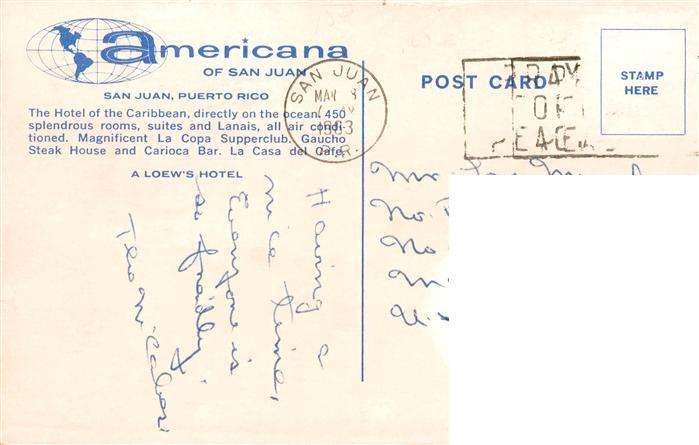 americana
OF SAN JUAN
SAN JUAN, PUERTO RICO
The Hotel of the Caribbean, directly on the ocean. 450
splendrous rooms, suites and Lanais, all air condi-
tioned. Magnificent La Copa Supperclub. Gaucho
Steak House and Carioca Bar. La Casa del Cafe.
A LOEW'S HOTEL
SAN JUAN
MAR 8
1963
P.R.
POST CARD
PRAY
FOR
PEACE
STAMP
HERE
Having a
nice time.
Everyone is
so friendly
Mr
No.
No